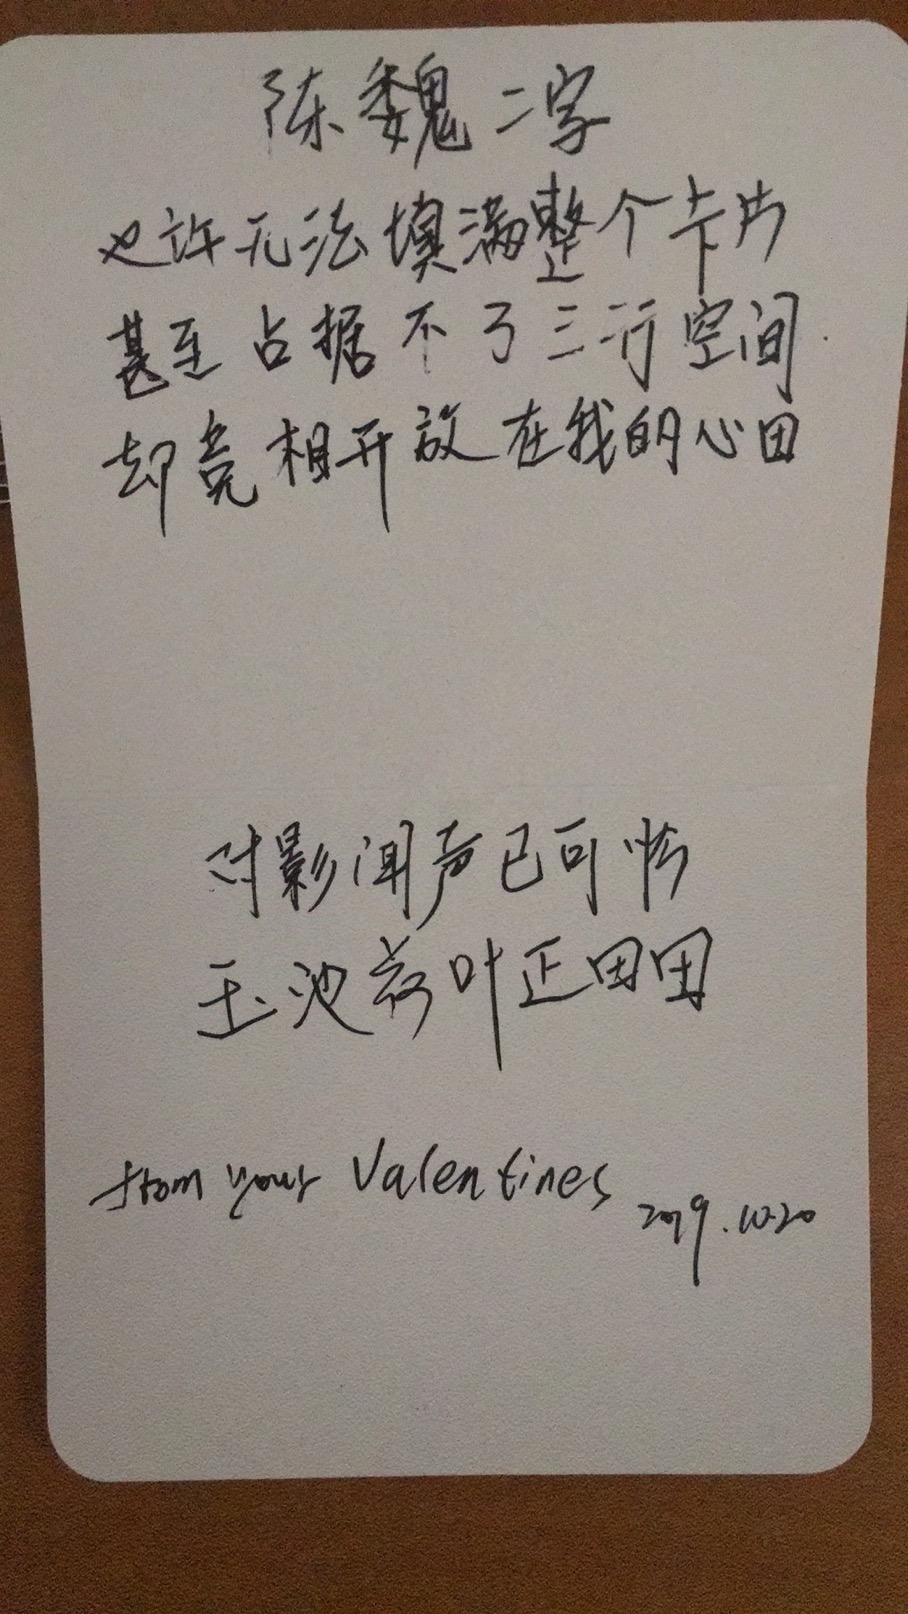 陈魏二字
也许无法填满整个卡片
甚至占据不了三行空间
却竞相开放在我的心田
对影闻声已可怜
玉池荷叶正田田
from your Valentines
2019.10.20